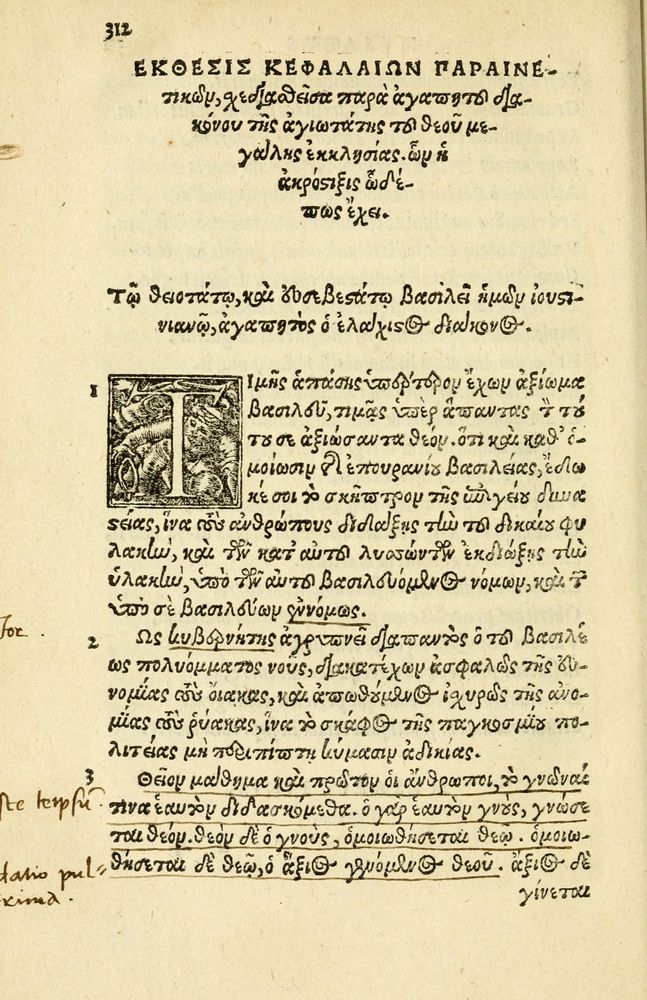 312
ΕΚΘΕΣΙΣ ΚΕΦΑΛΑΙΩΝ ΠΑΡΑΙΝΕ-
τικῶν, σχεδιασθεῖσα παρὰ ἀγαπητοῦ δια-
κόνου τῆς ἁγιωτάτης τοῦ θεοῦ με-
γάλης ἐκκλησίας. ὧν ἡ
ἀκρόστιξις ὧδέ-
πως ἔχει.
Τῷ θειοτάτῳ, καὶ εὐσεβεστάτῳ βασιλεῖ ἡμῶν ἰουστι-
νιανῷ, ἀγαπητὸς ὁ ἐλάχιστος διάκονος.
1 Τιμῆς ἁπάσης ὑπέρτερον ἔχων ἀξίωμα
βασιλεῦ, τιμᾷς ὑπὲρ ἅπαντας τὸν τού
του σε ἀξιώσαντα θεόν. ὅτι καὶ καθ᾽ ὁ-
μοίωσιν τῆς ἐπουρανίου βασιλείας, ἔδω
κέ σοι τὸ σκῆπτρον τῆς ἐπιγείου δυνα
στείας, ἵνα τοὺς ἀνθρώπους διδάξῃς τὴν τοῦ δικαίου φυ
λακὴν, καὶ τῶν κατ᾽ αὐτοῦ λυσσώντων ἐκδιώξῃς τὴν
ὑλακὴν, ὑπὸ τῶν αὐτοῦ βασιλευόμενος νόμων, καὶ τῶν
ὑπὸ σὲ βασιλεύων ἐννόμως.
for.
2 Ως κυβερνήτης ἀγρυπνεῖ διαπαντὸς ὁ τοῦ βασιλέ
ως πολυόμματος νοῦς, διακατέχων ἀσφαλῶς τῆς εὐ-
νομίας τοὺς οἴακας, καὶ ἀπωθούμενος ἰσχυρῶς τῆς ἀνο-
μίας τοὺς ῥύακας, ἵνα τὸ σκάφος τῆς παγκοσμίου πο-
λιτείας μὴ περιπίπτῃ κύμασιν ἀδικίας.
3 Θεῖον μάθημα καὶ πρῶτον οἱ ἄνθρωποι, τὸ γνῶναί
τινα ἑαυτὸν διδασκόμεθα. ὁ γὰρ ἑαυτὸν γνοὺς, γνώσε
ται θεόν. θεὸν δὲ ὁ γνοὺς, ὁμοιωθήσεται θεῷ. ὁμοιω-
θήσεται δὲ θεῷ, ὁ ἄξιος γενόμενος θεοῦ. ἄξιος δὲ
γίνεται